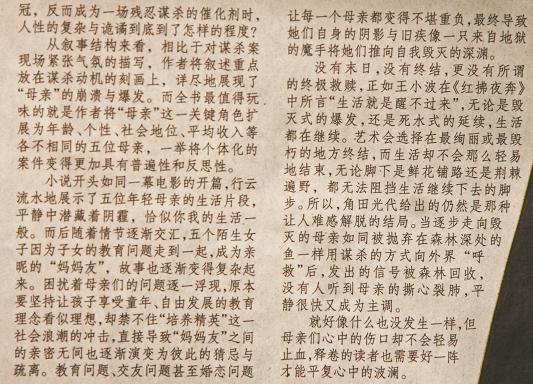 冠，反而成为一场残忍谋杀的催化剂时，
人性的复杂与诡谲到底到了怎样的程度？
从叙事结构来看，相比于对谋杀案
现场紧张气氛的描写，作者将叙述重点
放在谋杀动机的刻画上，详尽地展现了
“母亲”的崩溃与爆发。而全书最值得玩
味的就是作者将“母亲”这一关键角色扩
展为年龄、个性、社会地位、平均收入等
各不相同的五位母亲，一举将个体化的
案件变得更加具有普遍性和反思性。
小说开头如同一幕电影的开篇，行云
流水地展示了五位年轻母亲的生活片段，
平静中潜藏着阴霾，恰似你我的生活一
般。而后随着情节逐渐交汇，五个陌生女
子因为子女的教育问题走到一起，成为亲
昵的“妈妈友”，故事也逐渐变得复杂起
来。困扰着母亲们的问题一一浮现，原本
要坚持让孩子享受童年、自由发展的教育
理念看似理想，却禁不住“培养精英”这一
社会浪潮的冲击，直接导致“妈妈友”之间
的亲密无间也逐渐演变为彼此的猜忌与
疏离。教育问题、交友问题甚至婚恋问题
让每一个母亲都变得不堪重负，最终导致
她们自身的阴影与旧疾像一只来自地狱
的魔手将她们推向自我毁灭的深渊。
没有末日，没有终结，更没有所谓
的终极救赎，正如王小波在《红拂夜奔》
中所言“生活就是醒不过来”，无论是毁
灭式的爆发，还是死水式的延续，生活
都在继续。艺术会选择在最绚丽或最毁
朽的地方终结，而生活却不会那么轻易
地结束，无论脚下是鲜花铺路还是荆棘
遍野，都无法阻挡生活继续下去的脚
步。所以，角田光代给出的仍然是那种
让人难感解脱的结局。当逐步走向毁
灭的母亲如同被抛弃在森林深处的
鱼一样用谋杀的方式向外界“呼
救”后，发出的信号被森林回收，
没有人听到母亲的撕心裂肺，平
静很快又成为主调。
就好像什么也没发生一样，但
母亲们心中的伤口却不会轻易
止血，释卷的读者也需要好一阵
才能平复心中的波澜。